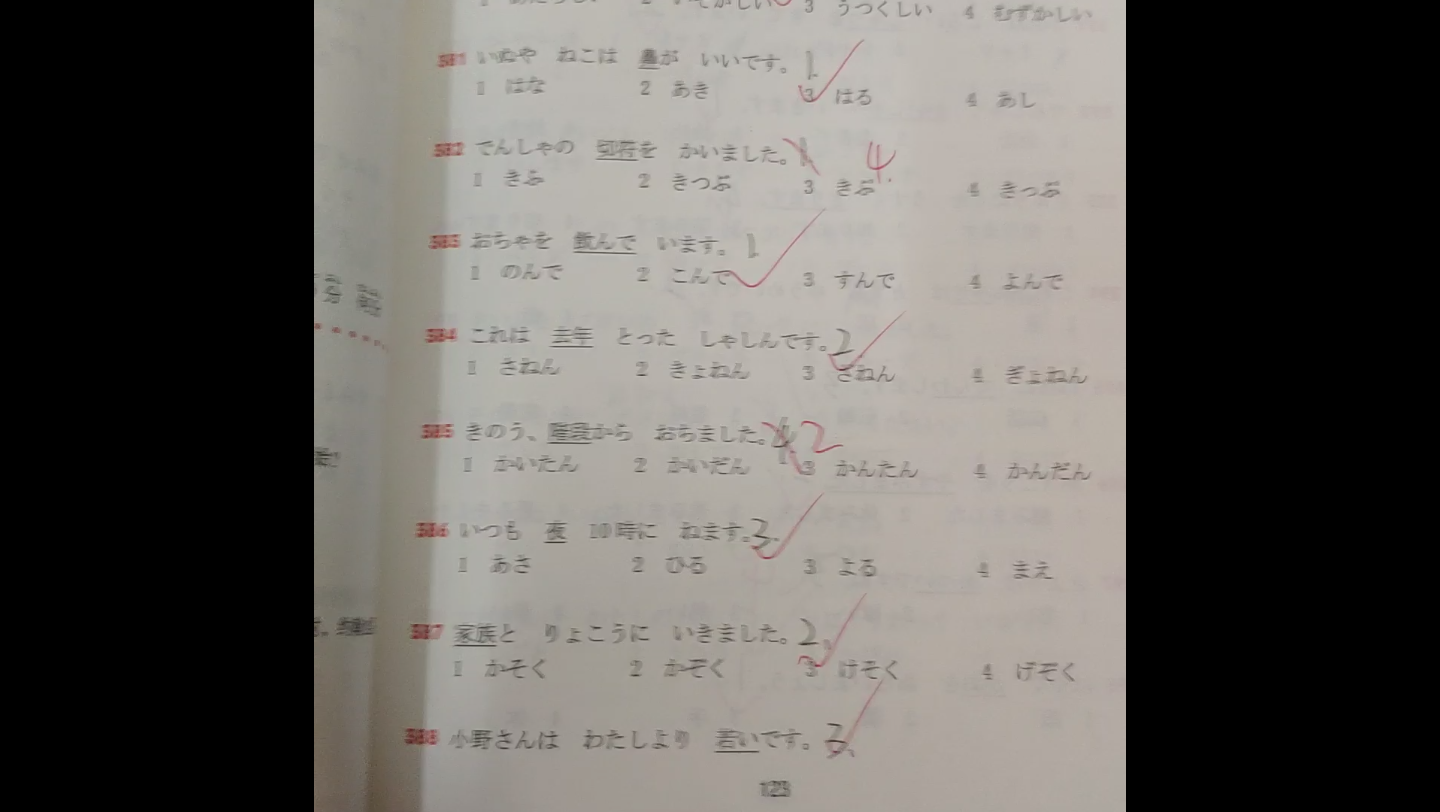 3 うつくしい 4 むずかしい
581 いぬや ねこは 鼻が いいです。 1.
1 はな 2 あき 3 はる 4 あし
582 でんしゃの 切符を かいました。 4.
1 きふ 2 きつぷ 3 きぷ 4 きっぷ
583 おちゃを 飲んで います。 1.
1 のんで 2 こんで 3 すんで 4 よんで
584 これは 去年 とった しゃしんです。 2
1 さねん 2 きょねん 3 ざねん 4 ぎょねん
585 きのう、階段から おちました。 4. 2
1 かいたん 2 かいだん 3 かんたん 4 かんだん
586 いつも 夜 10時に ねます。 3.
1 あさ 2 ひる 3 よる 4 まえ
587 家族と りょこうに いきました。 2.
1 かそく 2 かぞく 3 けそく 4 げぞく
588 小野さんは わたしより 若いです。 3.
123